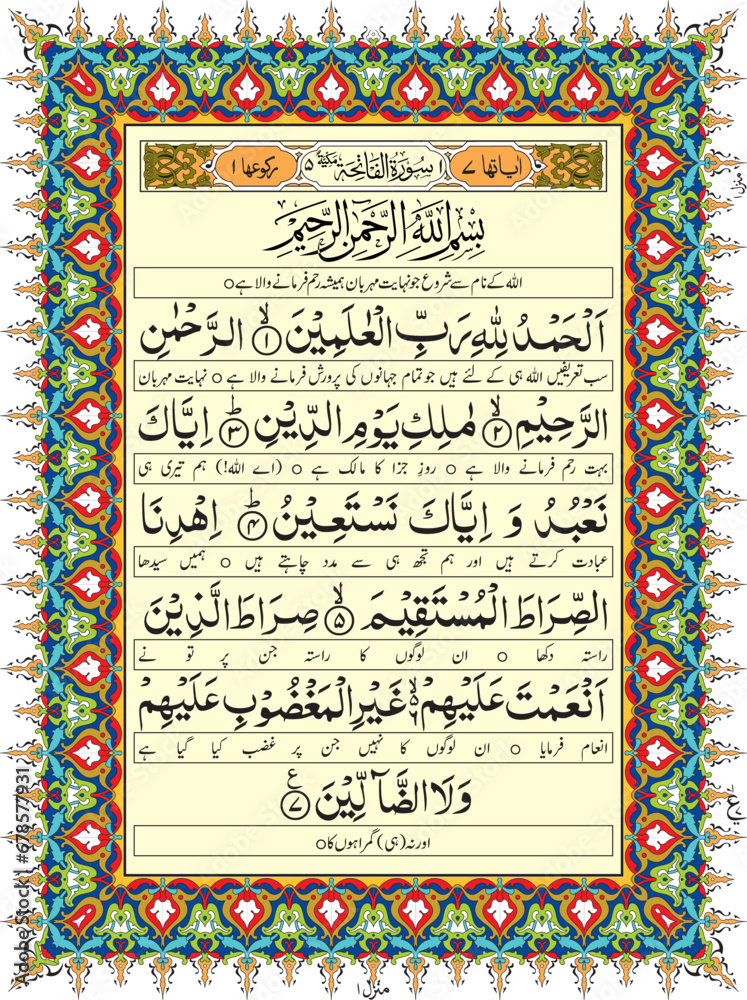 اٰیاتها ۷ ۱ سُوْرَةُ الْفَاتِحَةِ مَکِّیَّةٌ ۵ رکوعها ۱
بِسْمِ اللّٰهِ الرَّحْمٰنِ الرَّحِیْمِ
اللہ کے نام سے شروع جو نہایت مہربان ہمیشہ رحم فرمانے والا ہے ○
اَلْحَمْدُ لِلّٰهِ رَبِّ الْعٰلَمِیْنَ ۙ﴿۱﴾ الرَّحْمٰنِ
سب تعریفیں اللہ ہی کے لئے ہیں جو تمام جہانوں کی پرورش فرمانے والا ہے ○ نہایت مہربان
الرَّحِیْمِ ۙ﴿۲﴾ مٰلِکِ یَوْمِ الدِّیْنِ ؕ﴿۳﴾ اِیَّاكَ
بہت رحم فرمانے والا ہے ○ روزِ جزا کا مالک ہے ○ (اے اللہ!) ہم تیری ہی
نَعْبُدُ وَ اِیَّاكَ نَسْتَعِیْنُ ؕ﴿۴﴾ اِهْدِنَا
عبادت کرتے ہیں اور ہم تجھ ہی سے مدد چاہتے ہیں ○ ہمیں سیدھا
الصِّرَاطَ الْمُسْتَقِیْمَ ۙ﴿۵﴾ صِرَاطَ الَّذِیْنَ
راستہ دکھا ○ ان لوگوں کا راستہ جن پر تو نے
اَنْعَمْتَ عَلَیْهِمْ ۙ۬۶ غَیْرِ الْمَغْضُوْبِ عَلَیْهِمْ
انعام فرمایا ○ ان لوگوں کا نہیں جن پر غضب کیا گیا ہے
وَلَا الضَّآلِّیْنَ ﴿۷﴾ ع
اور نہ (ہی) گمراہوں کا ○
منزل ۱
منزل ۱
منزل ۱
Adobe Stock | #678577931